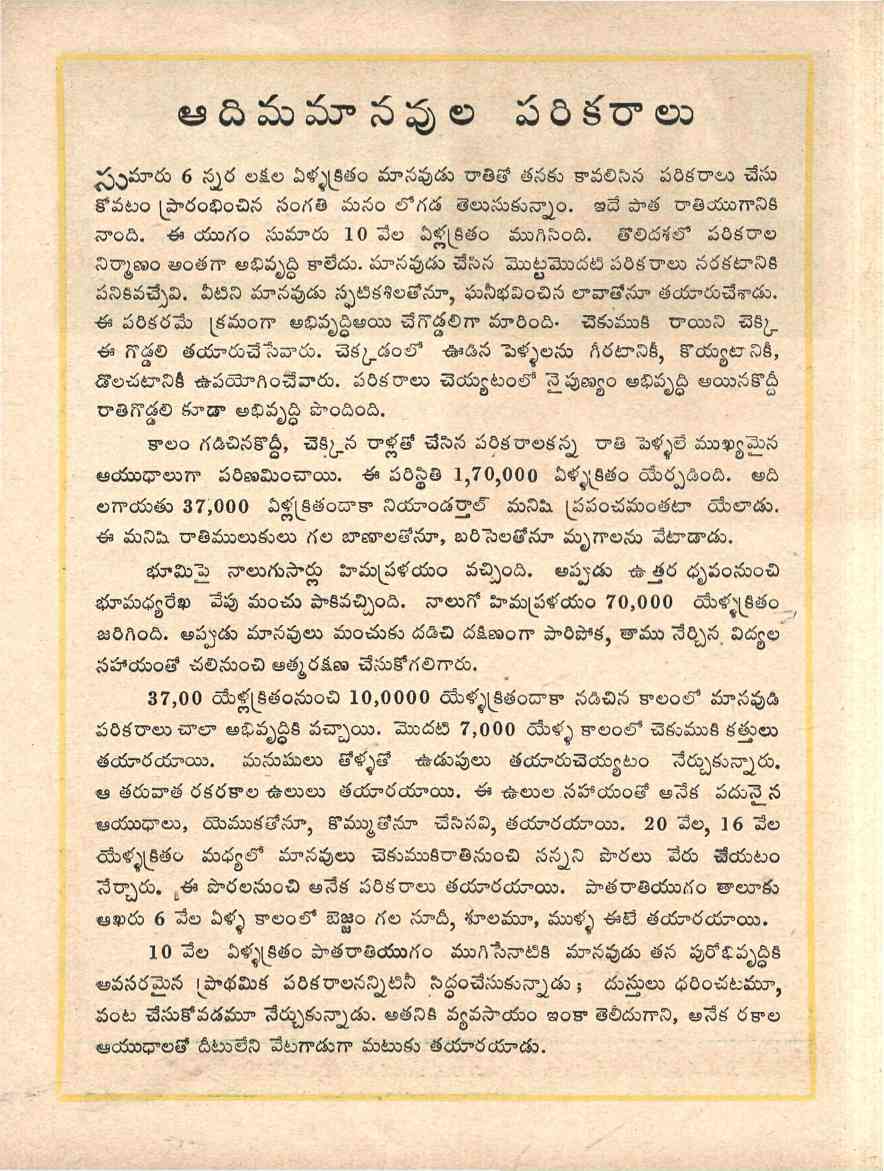 ఆదిమమానవుల పరికరాలు
సుమారు 6 న్నర లక్షల ఏళ్ళక్రితం మానవుడు రాతితో తనకు కావలిసిన పరికరాలు చేసు
కోవటం ప్రారంభించిన సంగతి మనం లోగడ తెలుసుకున్నాం. ఇదే పాత రాతియుగానికి
నాంది. ఈ యుగం సుమారు 10 వేల ఏళ్లక్రితం ముగిసింది. తొలిదశలో పరికరాల
నిర్మాణం అంతగా అభివృద్ధి కాలేదు. మానవుడు చేసిన మొట్టమొదటి పరికరాలు నరకటానికి
పనికివచ్చేవి. వీటిని మానవుడు స్ఫటికశిలతోనూ, ఘనీభవించిన లావాతోనూ తయారుచేశాడు.
ఈ పరికరమే క్రమంగా అభివృద్ధిఅయి చేగొడ్డలిగా మారింది. చెకుముకి రాయిని చెక్కి
ఈ గొడ్డలి తయారుచేసేవారు. చెక్కడంలో ఊడిన పెళ్ళలను గీరటానికీ, కొయ్యటానికీ,
డొలచటానికీ ఉపయోగించేవారు. పరికరాలు చెయ్యటంలో నైపుణ్యం అభివృద్ధి అయినకొద్దీ
రాతిగొడ్డలి కూడా అభివృద్ధి పొందింది.
కాలం గడిచినకొద్దీ, చెక్కిన రాళ్లతో చేసిన పరికరాలకన్న రాతి పెళ్ళలే ముఖ్యమైన
ఆయుధాలుగా పరిణమించాయి. ఈ పరిస్థితి 1,70,000 ఏళ్ళక్రితం యేర్పడింది. అది
లగాయతు 37,000 ఏళ్లక్రితందాకా నియాండర్తాల్ మనిషి ప్రపంచమంతటా యేలాడు.
ఈ మనిషి రాతిములుకులు గల బాణాలతోనూ, బరిసెలతోనూ మృగాలను వేటాడాడు.
భూమిపై నాలుగుసార్లు హిమప్రళయం వచ్చింది. అప్పుడు ఉత్తర ధృవంనుంచి
భూమధ్యరేఖ వేపు మంచు పాకివచ్చింది. నాలుగో హిమప్రళయం 70,000 యేళ్ళక్రితం
జరిగింది. అప్పుడు మానవులు మంచుకు దడిచి దక్షిణంగా పారిపోక, తాము నేర్చిన విద్యల
సహాయంతో చలినుంచి ఆత్మరక్షణ చేసుకోగలిగారు.
37,00 యేళ్లక్రితంనుంచి 10,0000 యేళ్ళక్రితందాకా నడిచిన కాలంలో మానవుడి
పరికరాలు చాలా అభివృద్ధికి వచ్చాయి. మొదటి 7,000 యేళ్ళ కాలంలో చెకుముకి కత్తులు
తయారయాయి. మనుషులు తోళ్ళతో ఉడుపులు తయారుచెయ్యటం నేర్చుకున్నారు.
ఆ తరువాత రకరకాల ఉలులు తయారయాయి. ఈ ఉలుల సహాయంతో అనేక పదునైన
ఆయుధాలు, యెముకతోనూ, కొమ్ముతోనూ చేసినవి, తయారయాయి. 20 వేల, 16 వేల
యేళ్ళక్రితం మధ్యలో మానవులు చెకుముకిరాతినుంచి సన్నని పొరలు వేరు చేయటం
నేర్చారు. ఈ పొరలనుంచి అనేక పరికరాలు తయారయాయి. పాతరాతియుగం తాలూకు
ఆఖరు 6 వేల ఏళ్ళ కాలంలో బెజ్జం గల సూదీ, శూలమూ, ముళ్ళ ఈటె తయారయాయి.
10 వేల ఏళ్ళక్రితం పాతరాతియుగం ముగిసేనాటికి మానవుడు తన పురోభివృద్ధికి
అవసరమైన ప్రాథమిక పరికరాలనన్నిటినీ సిద్ధంచేసుకున్నాడు; దుస్తులు ధరించటమూ,
వంట చేసుకోవడమూ నేర్చుకున్నాడు. అతనికి వ్యవసాయం ఇంకా తెలీదుగాని, అనేక రకాల
ఆయుధాలతో దీటులేని వేటగాడుగా మటుకు తయారయాడు.